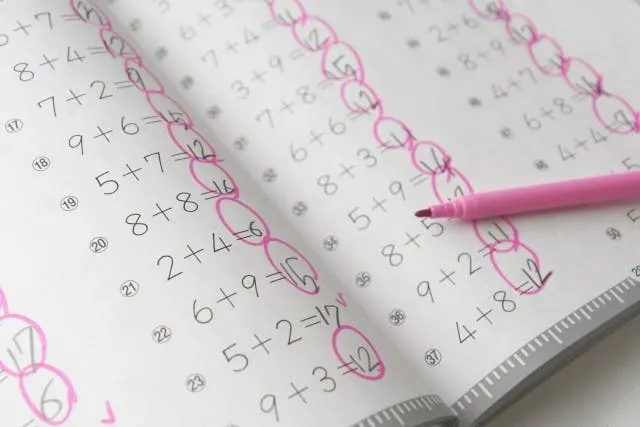 +7=12
8+4=12
⑰ 7+2=9
⑱ 9+6=15
⑲ 5+7=12
⑳ 8+8=16
㉑ 2+4=6
㉒ 6+9=15
㉓ 5+2=17
9+3=12
17
6
7+4=
3+9=12
7+8=15
6+6=12
㉝ 8+3=11
㉞ 5+9=14
㉟ 8+5
㊱ 9+2=11
㊲ 4+8=12
2+6=
8+9=17
4+7=
6+8=14
4+4=